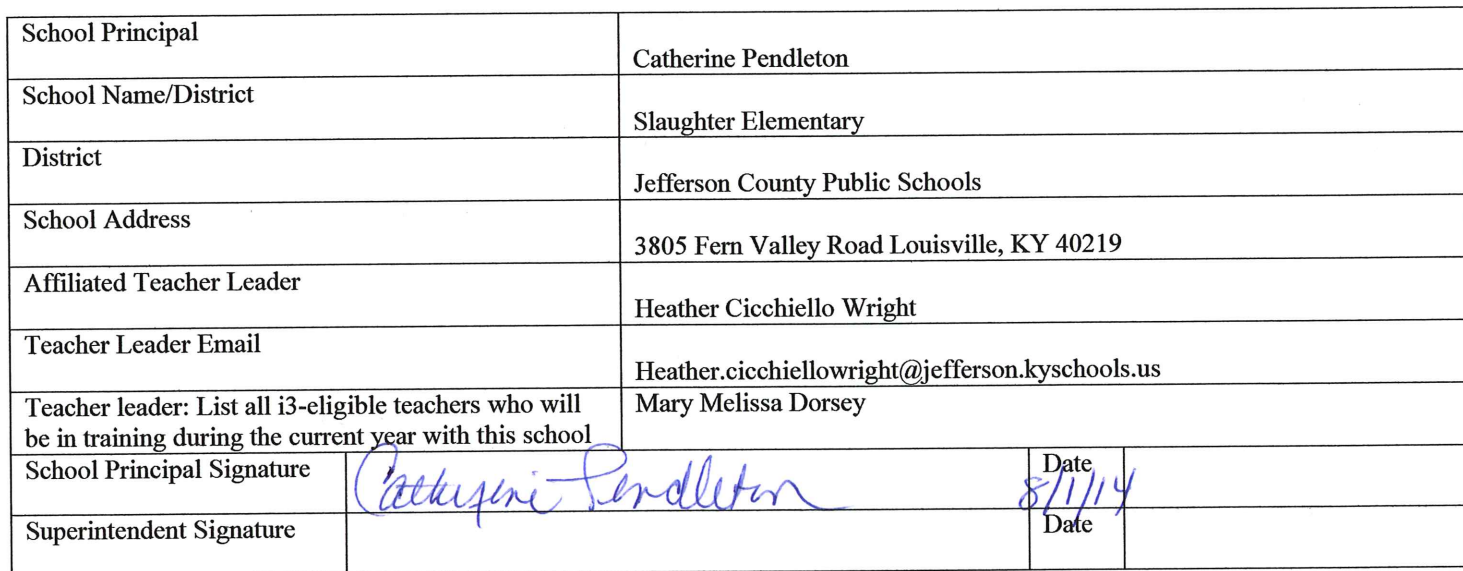 School Principal
Catherine Pendleton
School Name/District
Slaughter Elementary
District
Jefferson County Public Schools
School Address
3805 Fern Valley Road Louisville, KY 40219
Affiliated Teacher Leader
Heather Cicchiello Wright
Teacher Leader Email
Heather.cicchiellowright@jefferson.kyschools.us
Teacher leader: List all i3-eligible teachers who will
be in training during the current year with this school
Mary Melissa Dorsey
School Principal Signature
Catherine Pendleton
Date
8/1/14
Superintendent Signature
Date